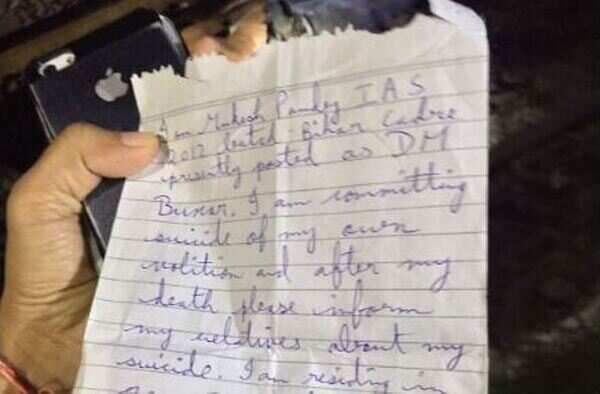 I am Mukesh Pandey IAS
2012 batch Bihar Cadre
presently posted as DM
Buxar. I am committing
suicide of my own
volition and after my
death please inform
my relatives about my
suicide. I am residing in